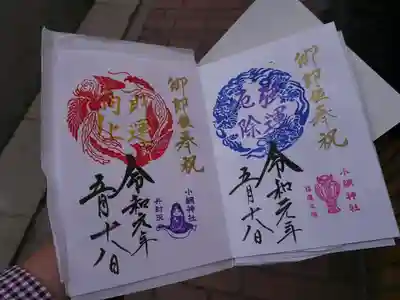 御即位奉祝
強運
厄除
令和元年
五月十八日
小網神社
御即位奉祝
財運
向上
令和元年
五月十八日
小網神社
弁財天